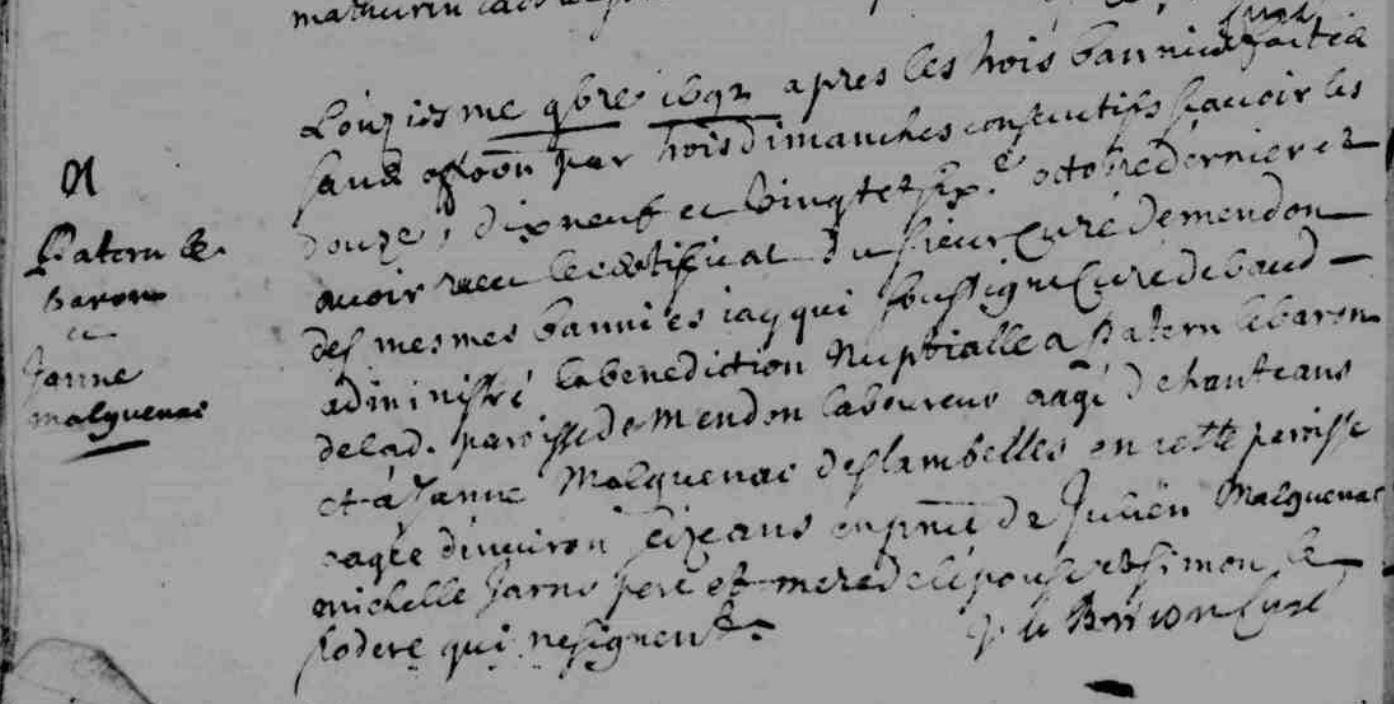 mathurin
L'onziesme 9bre 1692 apres les trois bannies faites
sans oppoon par trois dimanches consecutifs scavoir les
douze, dix neuf et vingt et six.e octobre dernier et
avoir receu le certificat du sieur Curé de mendon
des mesmes bannies iay qui soussigne Curé de baud
administré la benediction Nuptialle a Patern le baron
de lad. paroisse de mendon laboureur aagé de trante ans
et à Janne Malguenac des lambelles en cette paroisse
aagée d'environ seize ans en pnce de Julien Malguenac
michelle Jarno pere et mere de l'épouse et simon le
sodere qui ne signent.
Curé
Patern le
baron
et
Janne
malguenac